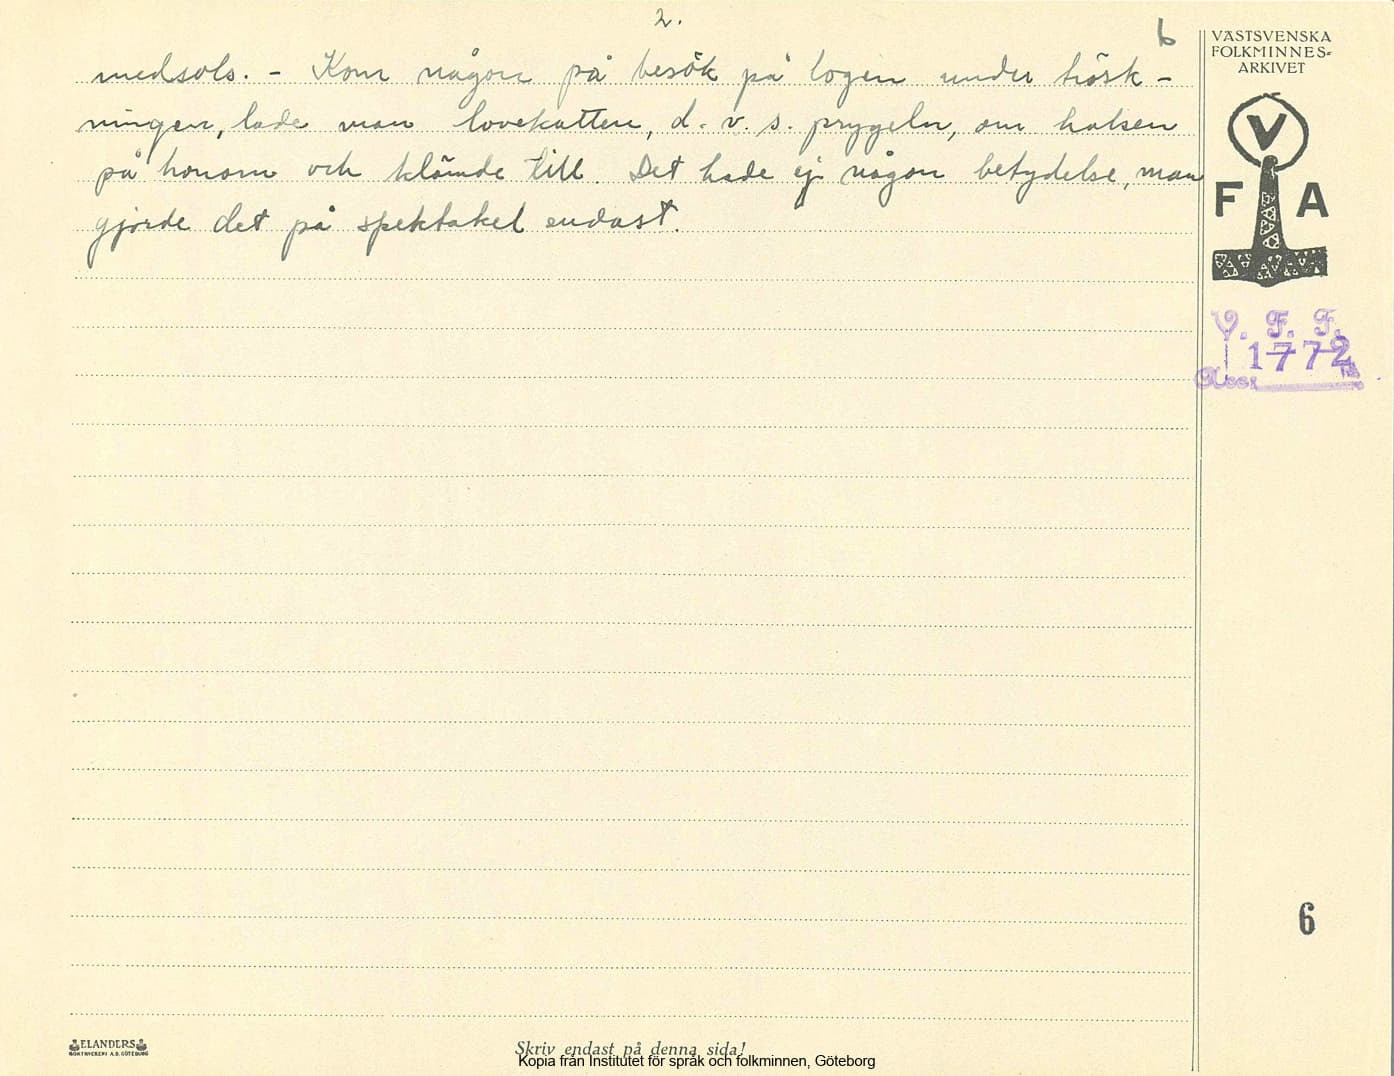 2.
6
medsols. - Kom någon på besök på logen under tròsk-
ningen, lade man lovekatten, d. v. s. prygeln, om halsen
på honom och klämde till. Det hade ej någon betydelse, man
gjorde det på spektakel endast.
VÄSTSVENSKA
FOLKMINNES-
ARKIVET
V
F A
V. F. F.
1772
6
ELANDERS
BOKTRYCKERI A.B. GÖTEBORG
Skriv endast på denna sida!
Kopia från Institutet för språk och folkminnen, Göteborg